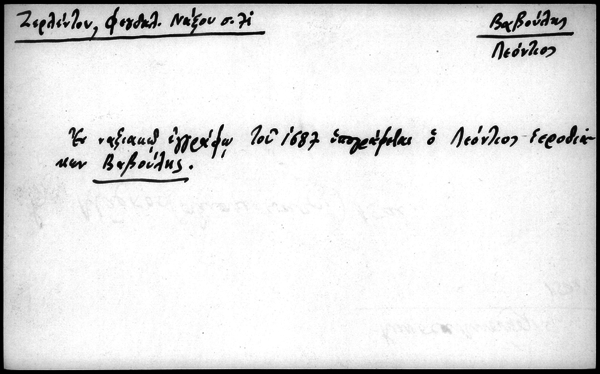 Ζερλέντου, Φεουδαλ. Νάξου σ. λί
Βαβούλης
Λεόντιος
Ἐν ναξιακῷ ἐγγράφῳ τοῦ 1687 ὑπογράφεται ὁ Λεόντιος ἱεροδιά-
κων Βαβούλης.